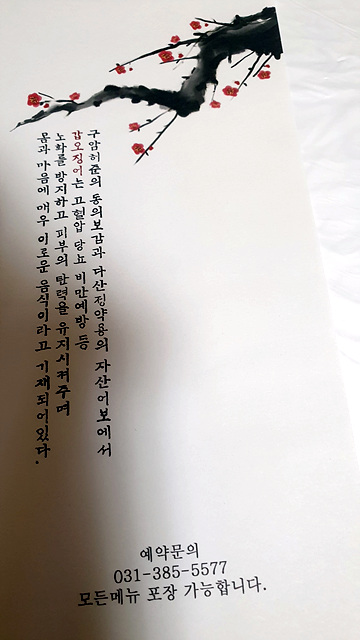 구암허준의 동의보감과 다산정약용의 자산어보에서
갑오징어는 고혈압 당뇨 비만예방 등
노화를 방지하고 피부의 탄력을 유지시켜주며
몸과 마음에 매우 이로운 음식이라고 기재되어있다.
예약문의
031-385-5577
모든메뉴 포장 가능합니다.